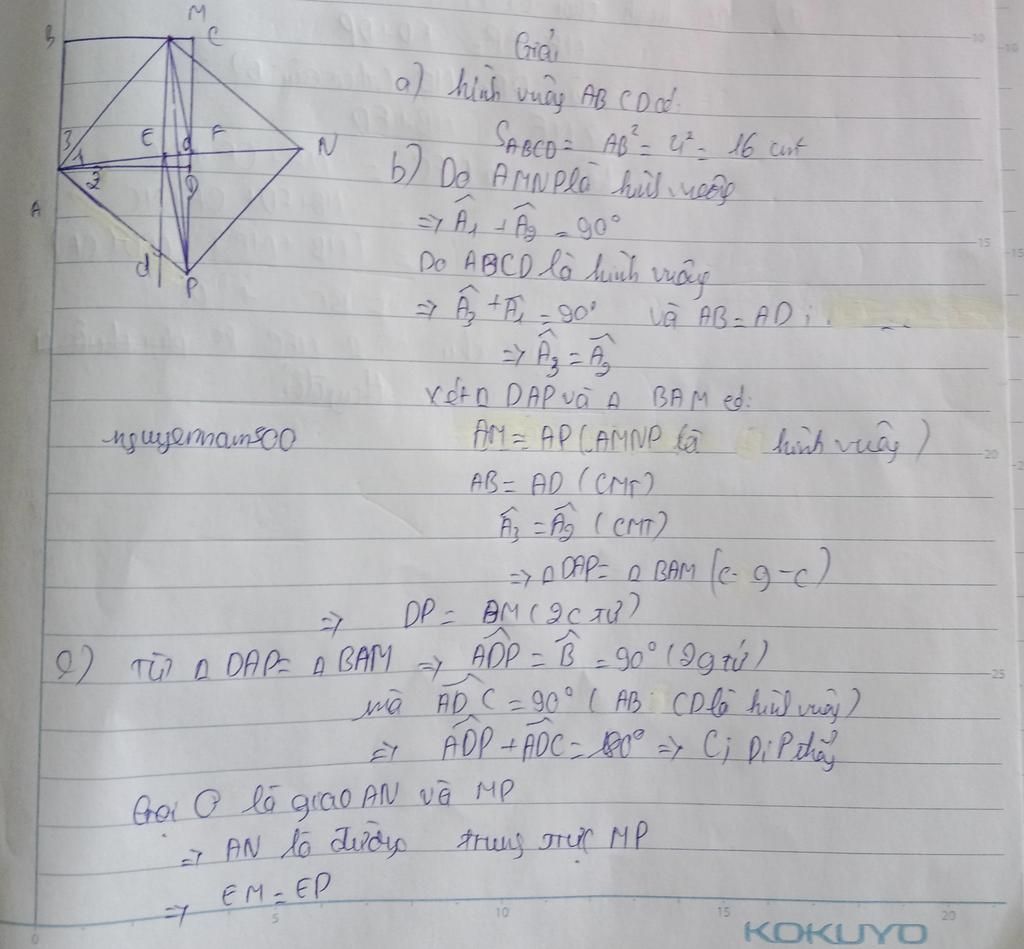 M
B C
Giải
a) hình vuông ABCD có:
S_ABCD = AB² = 4² = 16 cm²
E F N
3 1
2
A
d
P
b) Do AMNP là hình vuông
=> Â₁ + Â₂ = 90°
Do ABCD là hình vuông
=> Â₃ + Â₁ = 90° và AB = AD ;
=> Â₃ = Â₂
Xét Δ DAP và Δ BAM có:
nguyennam500
AM = AP (AMNP là hình vuông)
AB = AD (CMT)
Â₃ = Â₂ (CMT)
=> Δ DAP = Δ BAM (c-g-c)
=> DP = BM (2c tứ)
c) Từ Δ DAP = Δ BAM => ADP = B̂ = 90° (2g tứ)
mà ADC = 90° (ABCD là hình vuông)
=> ADP + ADC = 180° => C; D; P thẳng
Gọi O là giao AN và MP
=> AN là đường trung trực MP
=> EM = EP
0 5 10 15 20
KOKUYO